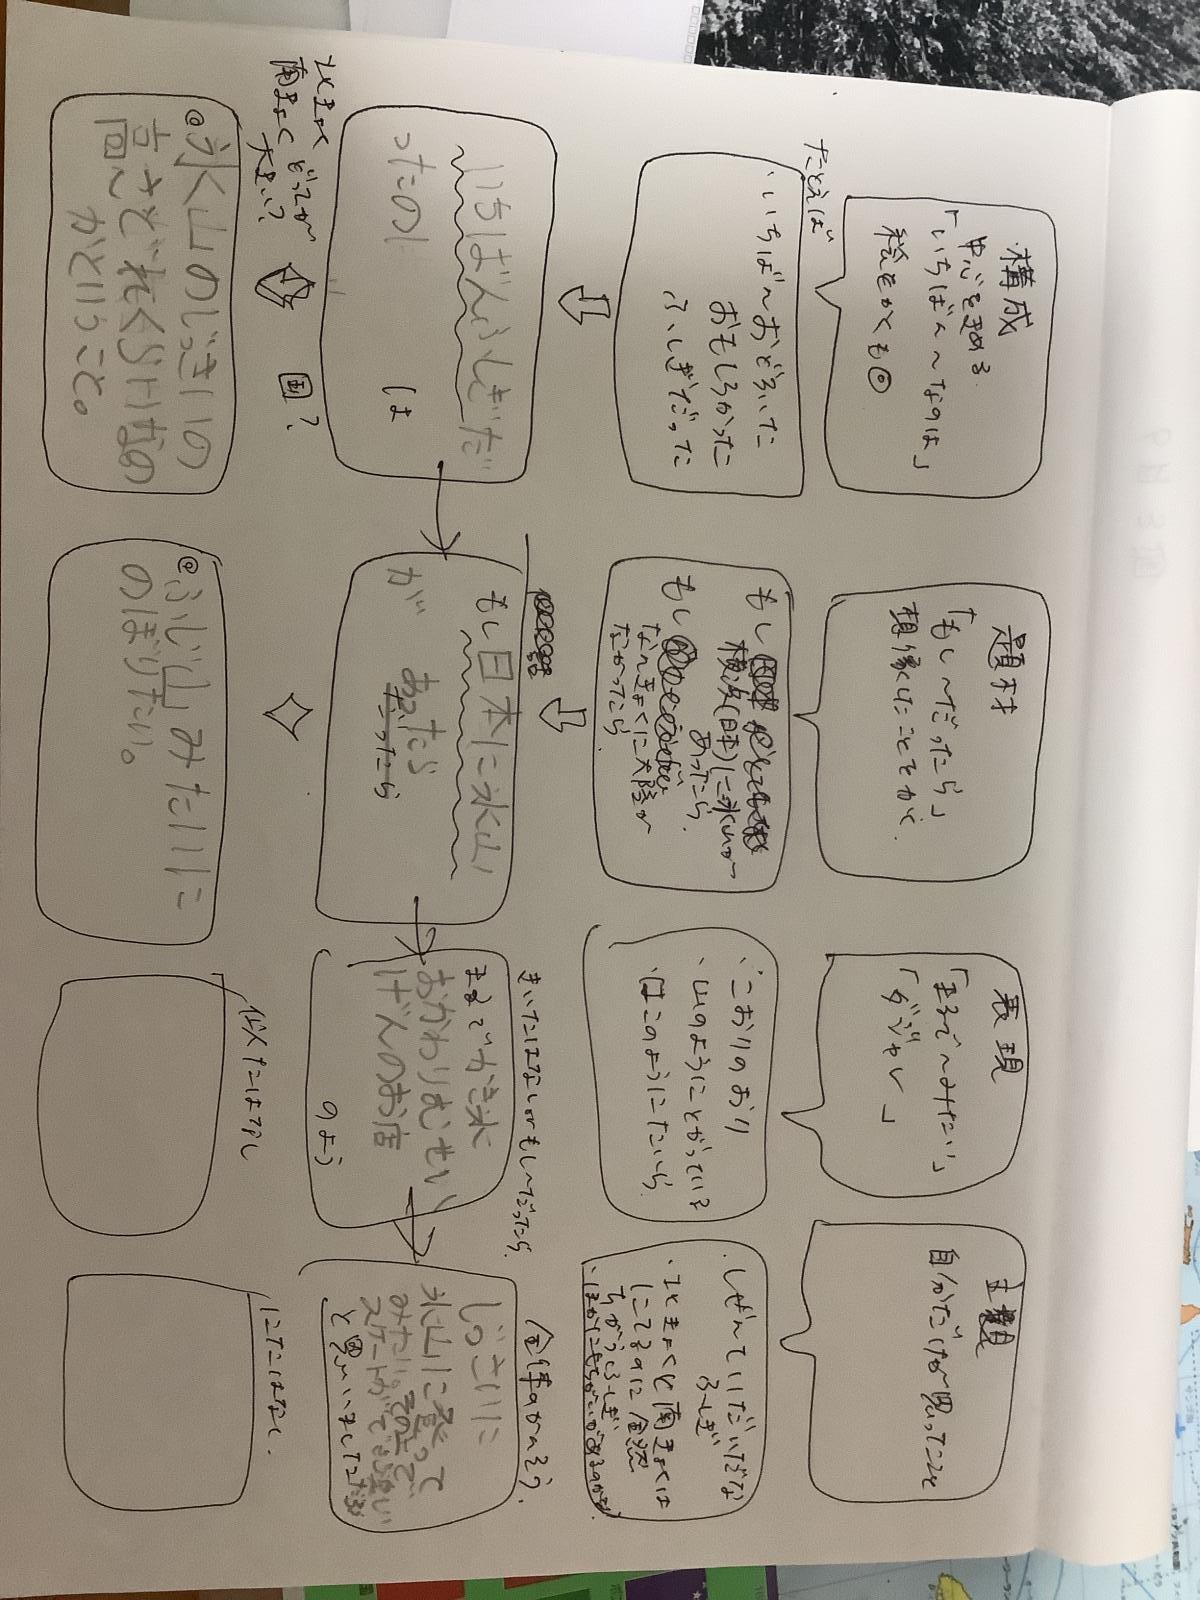 構成
中心をきめる
「いちばん〜なのは」
絵をかくも◎
題材
「もし〜だったら」
想像したことをかく
表現
「まるで〜みたい」
「ダジャレ」
主題
自分だけが思ってこと
たとえば
・いちばんおどろいた
おもしろかった
ふしぎだった
もし
横浜(日本)に氷山が
あったら
もし
なんきょくに大陸が
なかったら
・こおりのおり
・山のようにとがっている
・はこのようにたいら
・ぜんていだいだな
ふしぎ
・北きょくと南きょくは
にてるのに全然
ちがうふしぎ
・ほかにもちがいがあるのかな
いちばんふしぎだ
ったの
は
もし日本に氷山
が あったら
だったら
きいたはなしがもし〜だったら
まるでかき氷
おかわりむせい
げんのお店
のよう
全体のかんそう
じっさいに
氷山に登って
みたい。その上で
スケートができ
と思いました
北きょく
南きょく どっちが
大きい?
国?
似たはなし
にたはなし
@氷山のじっさいの
高さどれくらいなの
かということ。
@ふじ山みたいに
のぼりたい。